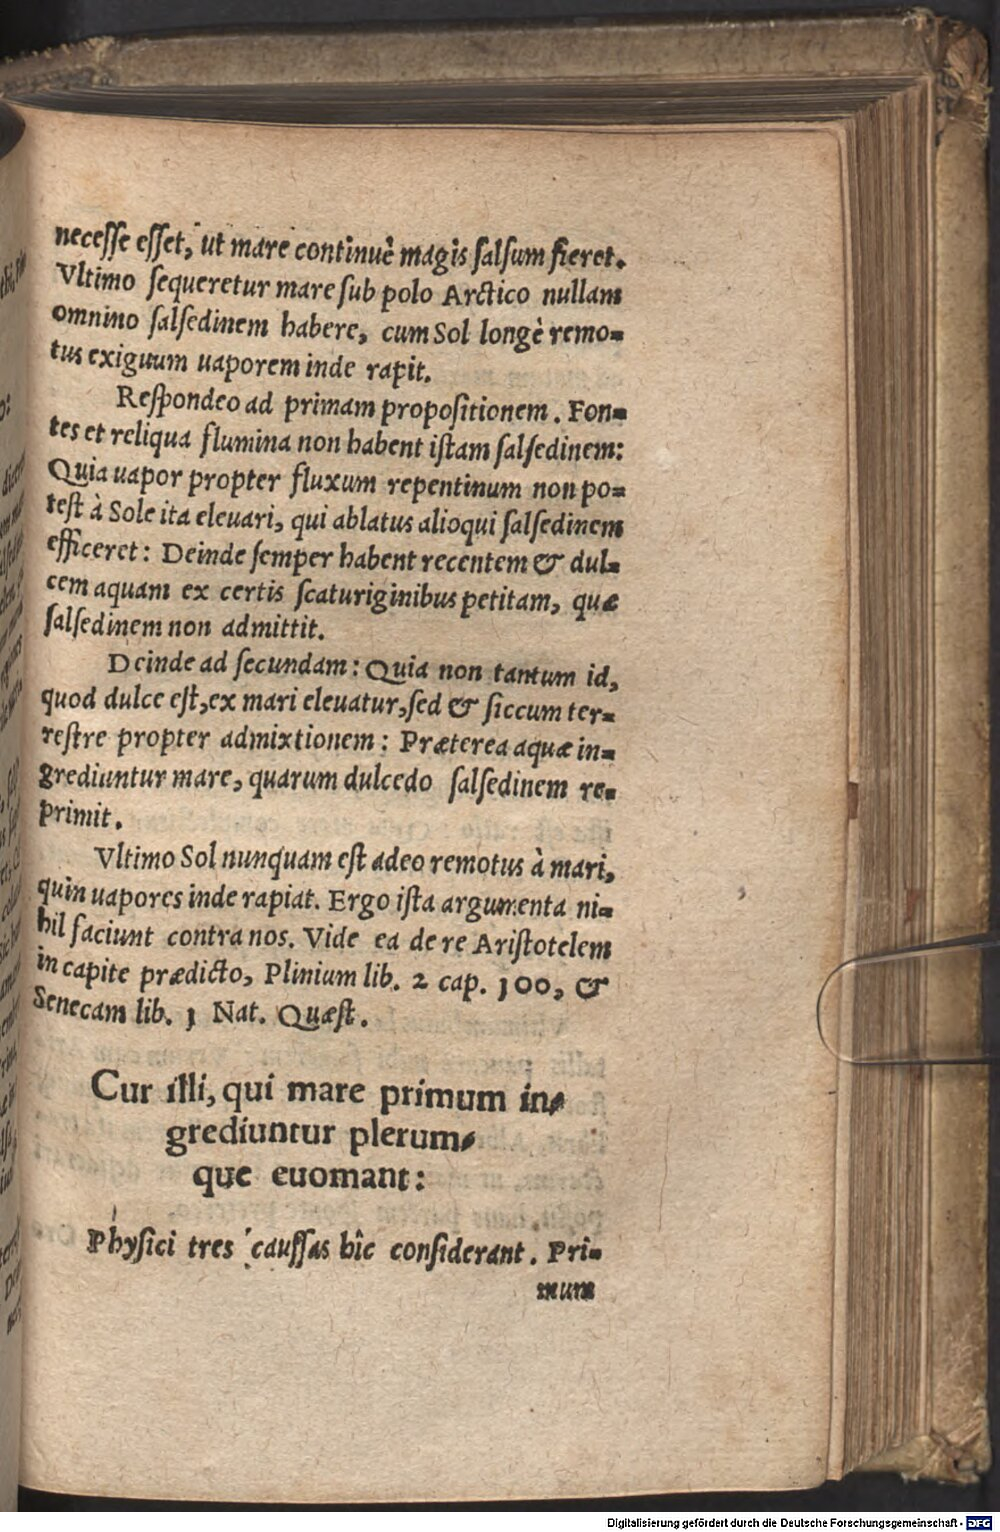 necesse esset, ut mare continuè magis salsum fieret.
Vltimo sequeretur mare sub polo Arctico nullam
omnino salsedinem habere, cum Sol longè remo-
tus exiguum uaporem inde rapit.
Respondeo ad primam propositionem. Fon-
tes et reliqua flumina non habent istam salsedinem:
Quia uapor propter fluxum repentinum non po-
test à Sole ita eleuari, qui ablatus alioqui salsedinem
efficeret: Deinde semper habent recentem & dul-
cem aquam ex certis scaturiginibus petitam, quæ
salsedinem non admittit.
Deinde ad secundam: Quia non tantum id,
quod dulce est, ex mari eleuatur, sed & siccum ter-
restre propter admixtionem: Præterea aquæ in-
grediuntur mare, quarum dulcedo salsedinem re-
primit.
Vltimo Sol nunquam est adeo remotus à mari,
quin uapores inde rapiat. Ergo ista argumenta ni-
hil faciunt contra nos. Vide ea de re Aristotelem
in capite prædicto, Plinium lib. 2 cap. 100, &
Senecam lib. 1 Nat. Quæst.
Cur illi, qui mare primum in-
grediuntur plerum-
que euomant:
Physici tres caussas hîc considerant. Pri-
mum
Digitalisierung gefördert durch die Deutsche Forschungsgemeinschaft - DFG